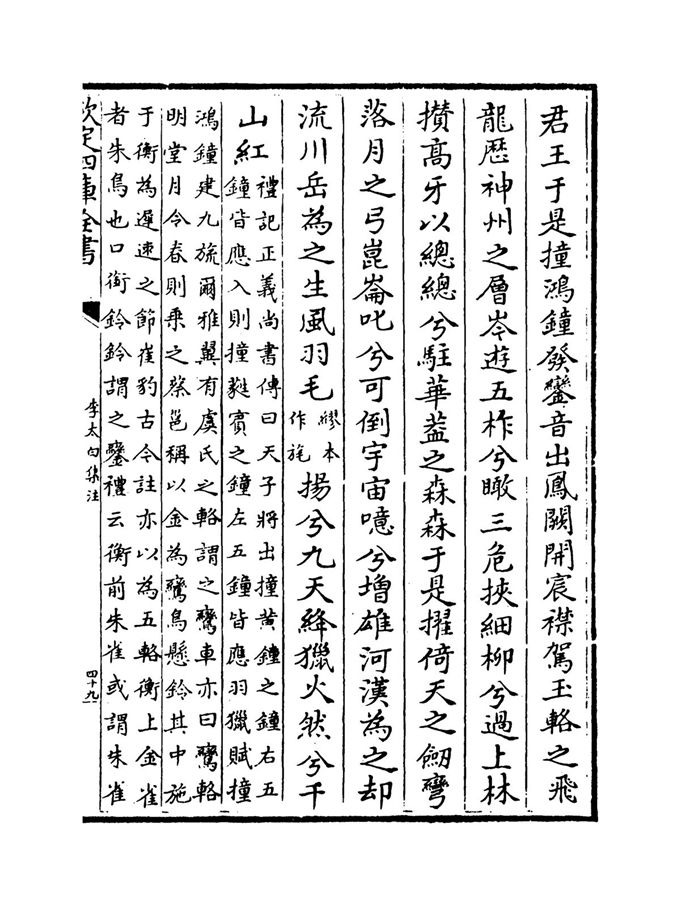 君王于是撞鴻鐘發鑾音出鳳闕開宸襟駕玉輅之飛
龍歷神州之層岑遊五柞兮瞰三危挾細柳兮過上林
攅高牙以總總兮駐華葢之森森于是擢倚天之劒彎
落月之弓崑崙叱兮可倒宇宙噫兮增雄河漢為之却
流川岳為之生風羽毛繆本作旄揚兮九天絳獵火然兮千
山紅禮記正義尚書傳曰天子將出撞黄鐘之鐘右五
鐘皆應入則撞蕤賔之鐘左五鐘皆應羽獵賦撞
鴻鐘建九旒爾雅翼有虞氏之輅謂之鸞車亦曰鸞輅
明堂月令春則乗之蔡邕稱以金為鸞鳥懸鈴其中施
于衡為遲速之節崔豹古今註亦以為五輅衡上金雀
者朱鳥也口銜鈴鈴謂之鑾禮云衡前朱雀或謂朱雀
欽定四庫全書
李太白集注
四十九